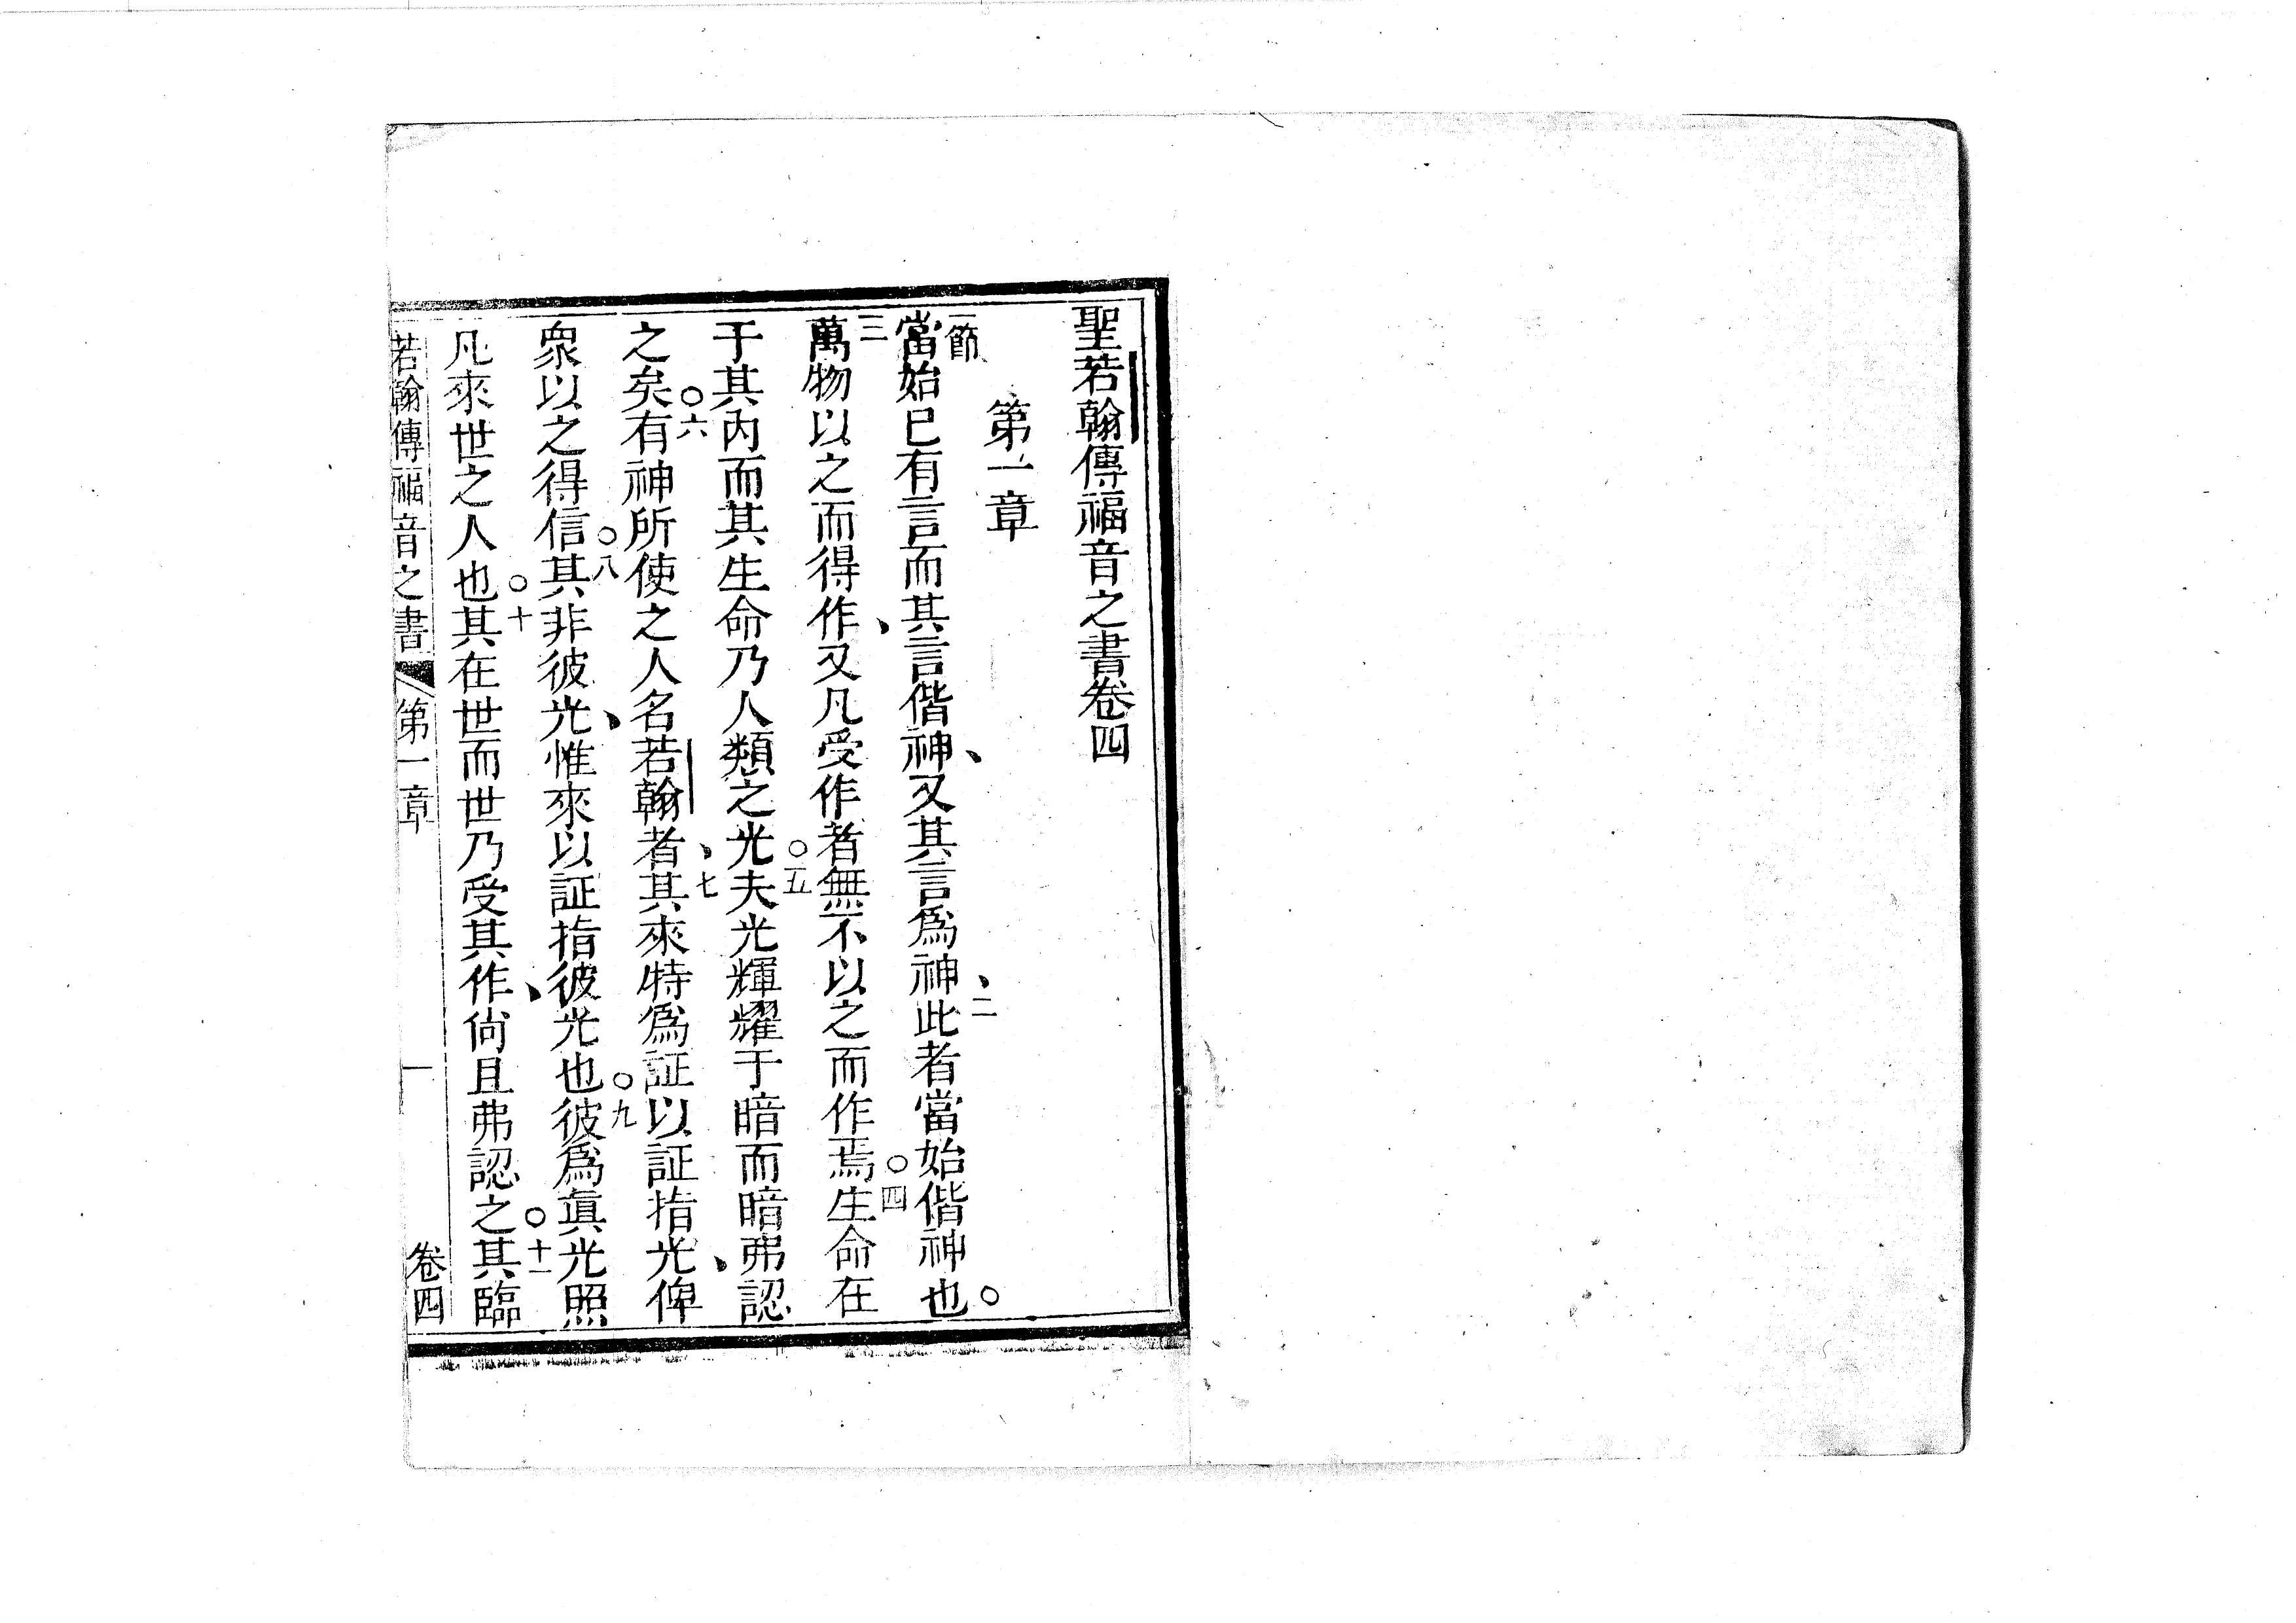 聖若翰傳福音之書卷四
第一章
一節
當始已有言而其言偕神、又其言爲神、二此者當始偕神也。
三萬物以之而得作、又凡受作者無不以之而作焉○四生命在
于其內而其生命乃人類之光○五夫光輝耀于暗而暗弗認
之矣○六有神所使之人名若翰者、七其來特爲証以証指光、俾
衆以之得信○八其非彼光、惟來以証指彼光也○九彼爲眞光照
凡來世之人也○十其在世而世乃受其作、尙且弗認之○十一其臨
若翰傳福音之書 第一章 一 卷四